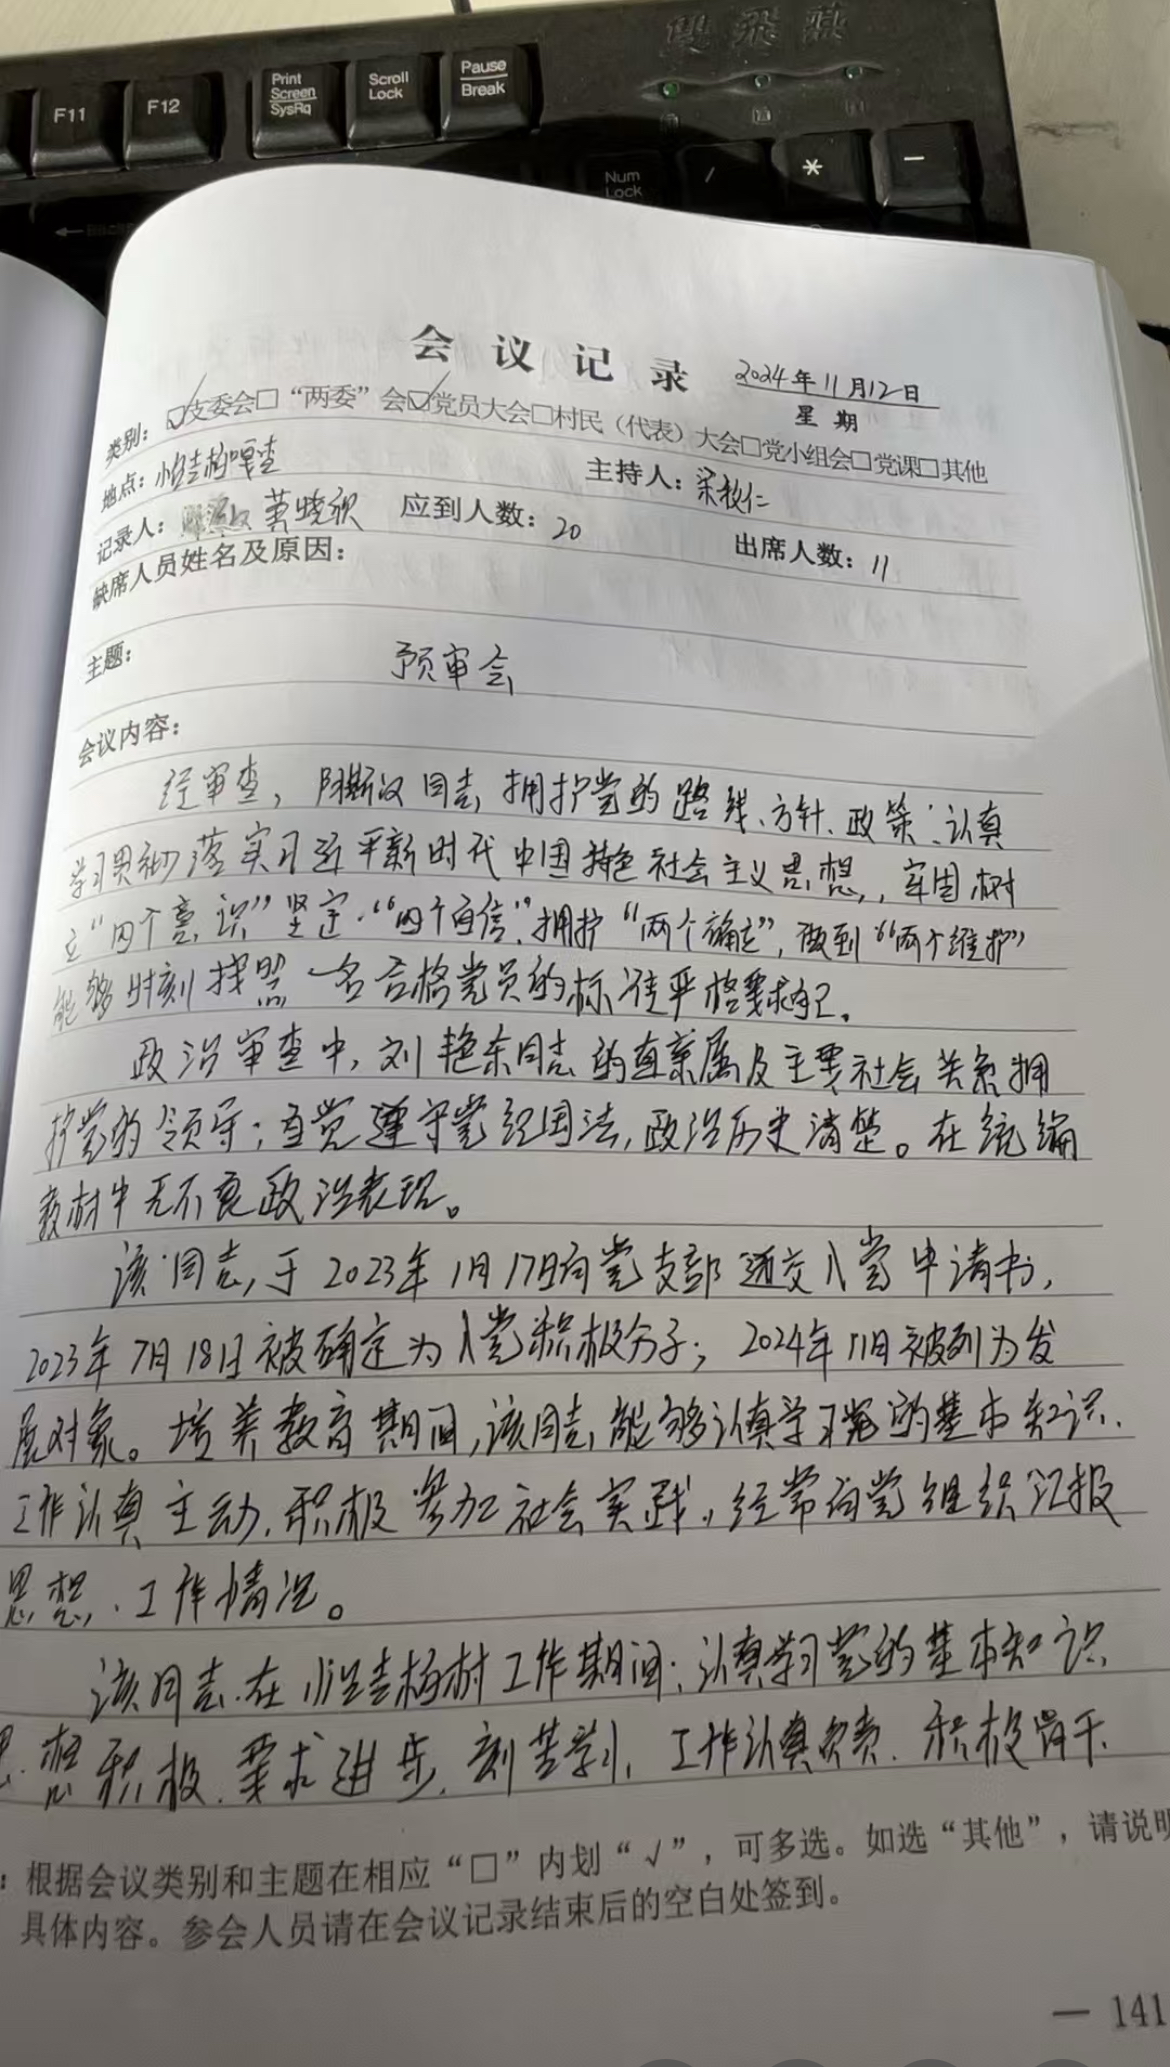 F11 F12 Print Screen SysRq Scroll Lock Pause Break
雙飛燕
Num Lock / * -
会议记录
2024年11月12日
星期
类别：☑支委会□“两委”会☑党员大会□村民（代表）大会□党小组会□党课□其他
地点： 主持人：
记录人： 黄晓欣 应到人数：20 出席人数：11
缺席人员姓名及原因：
主题： 预审会
会议内容：
经审查，阿斯汉同志，拥护党的路线、方针、政策；认真
学习贯彻落实习近平新时代中国特色社会主义思想，牢固树
立“四个意识”坚定“四个自信”，拥护“两个确立”，做到“两个维护”
能够时刻按照一名合格党员的标准严格要求自己。
政治审查中，刘艳东同志的直亲属及主要社会关系拥
护党的领导；自觉遵守党纪国法，政治历史清楚。在统编
教材中无不良政治表现。
该同志，于2023年1月17日向党支部递交入党申请书，
2023年7月18日被确定为入党积极分子；2024年11月被列为发
展对象。培养教育期间，该同志能够认真学习党的基本知识、
工作认真主动，积极参加社会实践，经常向党组织汇报
思想、工作情况。
该同志在 工作期间：认真学习党的基本知识
思想积极、要求进步，刻苦学习，工作认真负责、积极肯干
：根据会议类别和主题在相应“□”内划“√”，可多选。如选“其他”，请说明
具体内容。参会人员请在会议记录结束后的空白处签到。
— 141